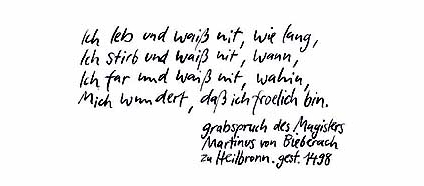 Ich leb und waiß nit, wie lang,
Ich stirb und waiß nit, wann,
Ich far und waiß nit, wahin,
Mich wundert, daß ich froelich bin.
grabspruch des Magisters
Martinus von Bieberach
zu Heilbronn. gest. 1498